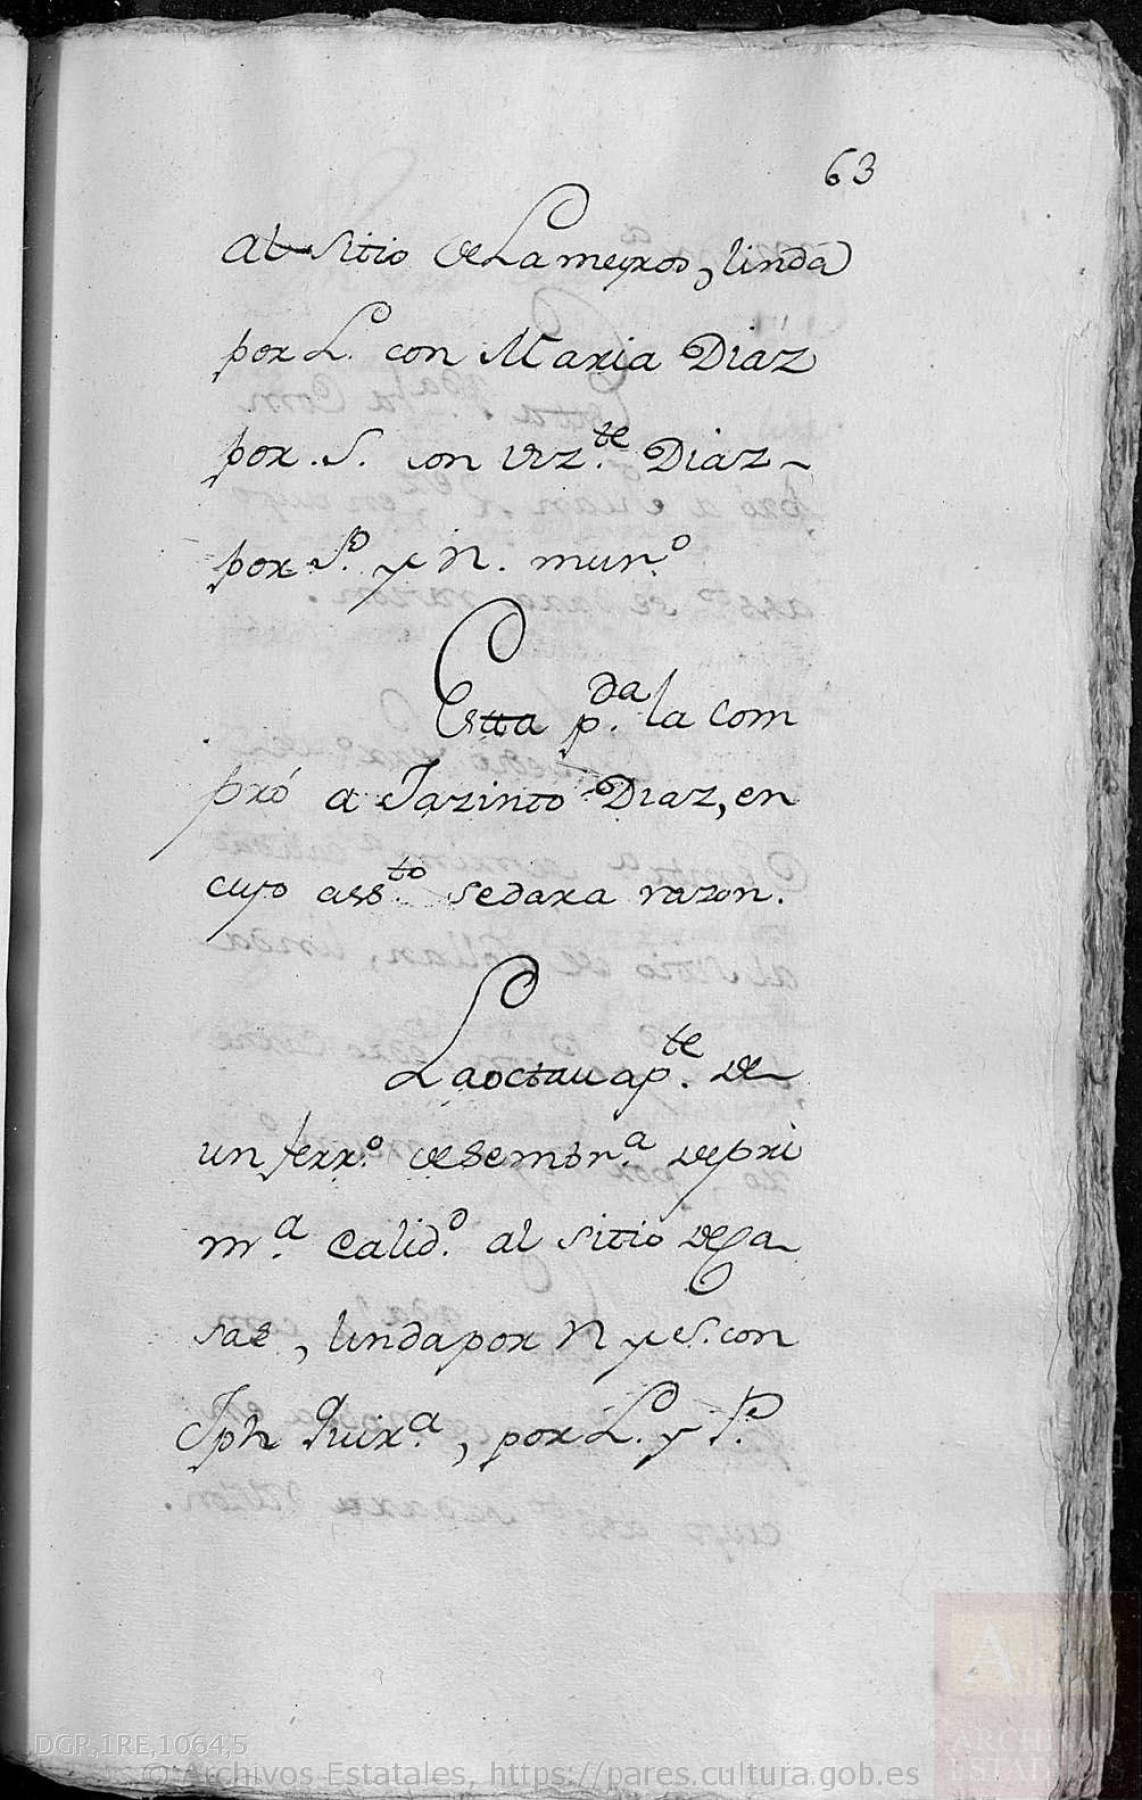 63
al sitio de Lameyros, linda
por L.º con Maria Diaz
por .S. con Viz.te Diaz
por P.º y N. mur.º
Estta p.da la com
pró a Jazinto Diaz, en
cuyo ass.to se dara razon.
La octaua p.te de
un ferr.º de sembr.a de pri
m.a Calid.º al sitio de Ca
sas, linda por N y S. con
Jph Quir.a, por L.º y P.e
DGR,1RE,1064,5
© Archivos Estatales, https://pares.cultura.gob.es
A
ARCHIVOS
ESTATALES